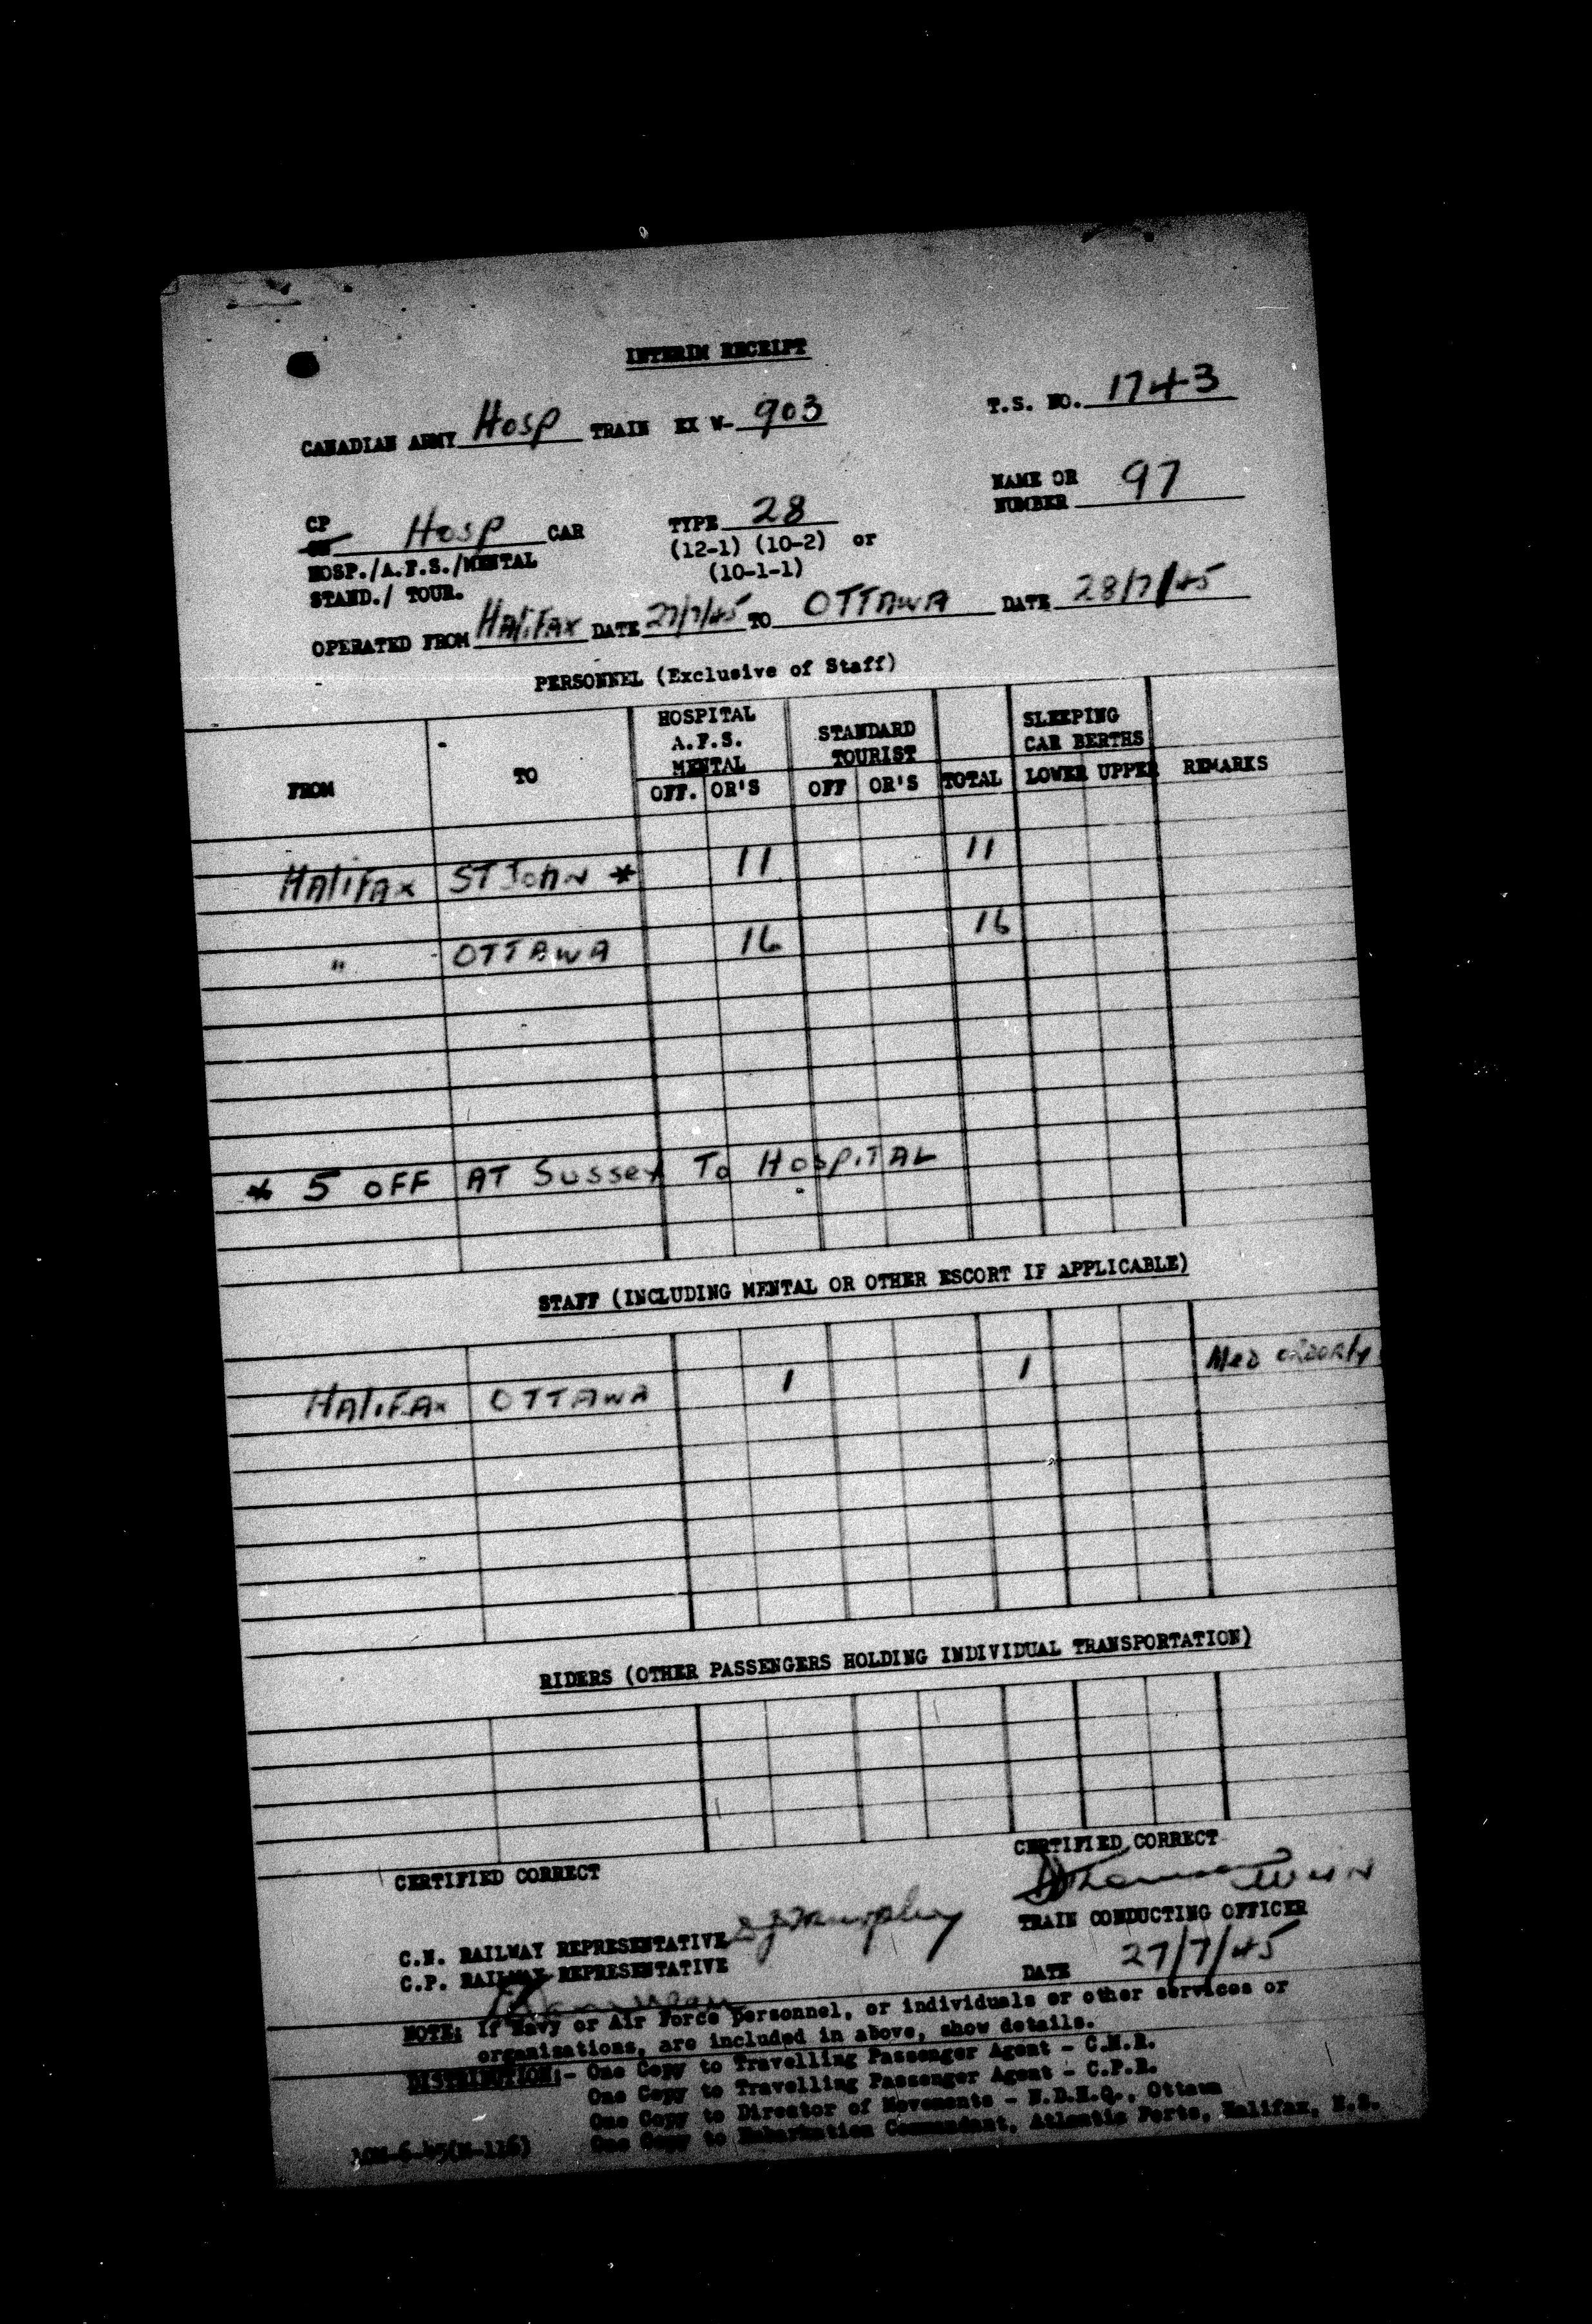 INTERIM RECEIPT
CANADIAN ARMY Hosp TRAIN EX W- 903 T.S. NO. 1743
CP Hosp CAR TYPE 28 NAME OR NUMBER 97
HOSP./A.F.S./MENTAL (12-1) (10-2) or
STAND./ TOUR. (10-1-1)
OPERATED FROM HALIFAX DATE 27/7/45 TO OTTAWA DATE 28/7/45
PERSONNEL (Exclusive of Staff)
FROM TO HOSPITAL A.F.S. MENTAL STANDARD TOURIST TOTAL SLEEPING CAR BERTHS REMARKS
OFF. OR'S OFF OR'S LOWER UPPER
HALIFAX ST JOHN * 11 11
" OTTAWA 16 16
* 5 OFF AT SUSSEX TO HOSPITAL
STAFF (INCLUDING MENTAL OR OTHER ESCORT IF APPLICABLE)
HALIFAX OTTAWA 1 1 MED ORDORLY
RIDERS (OTHER PASSENGERS HOLDING INDIVIDUAL TRANSPORTATION)
CERTIFIED CORRECT CERTIFIED CORRECT
C.N. RAILWAY REPRESENTATIVE TRAIN CONDUCTING OFFICER
C.P. RAILWAY REPRESENTATIVE DATE 27/7/45
NOTE: If Navy or Air Force personnel, or individuals or other services or
organizations, are included in above, show details.
DISTRIBUTION:- One Copy to Travelling Passenger Agent - C.N.R.
One Copy to Travelling Passenger Agent - C.P.R.
One Copy to Director of Movements - N.D.H.Q., Ottawa
One Copy to Embarkation Commandant, Atlantic Ports, Halifax, N.S.